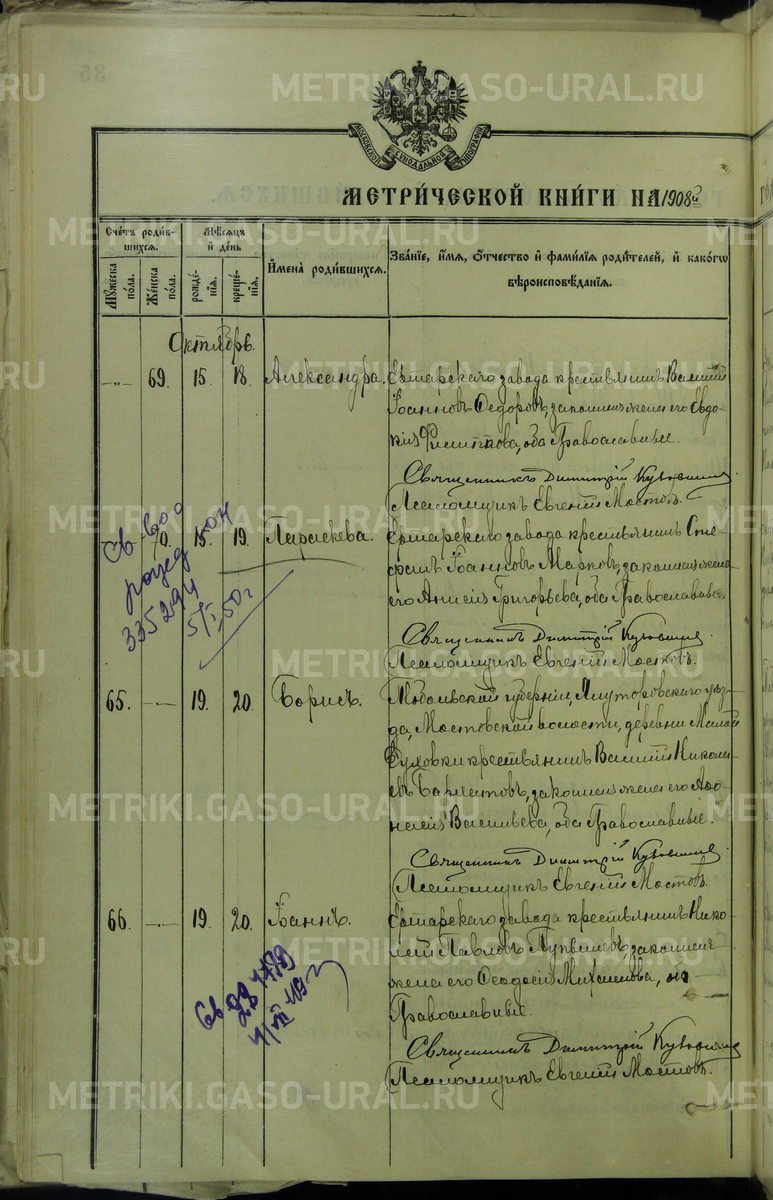 METRIKI.GASO-URAL.RU
МОСКОВСКОЙ СѴНОДАЛЬНОЙ ТИПОГРАФІИ
МЕТРИЧЕСКОЙ КНИГИ НА 1908й
Счетъ родив-
шихся.
Мѣсяцъ
и день
Имена родившихся.
Званіе, имя, отчество и фамилія родителей, и какогѡ
вѣроисповѣданія.
Мужеска
пола.
Женска
пола.
рожде-
нія.
креще-
нія.
Октябрь.
-„- 69. 15. 18. Александра. Ертарскаго завода крестьянинъ Василій
Іоанновъ Ѳедоровъ, законная жена его Евдо-
кія Филиппова, оба Православные.
Священникъ Димитрій
Псаломщикъ Евгеній Мостовъ.
70. 15. 19. Параскева. Ертарскаго завода крестьянинъ Сте-
фанъ Іоанновъ Марковъ, законная жена
его Анисія Григорьева, оба Православные.
Священникъ Димитрій
Псаломщикъ Евгеній Мостовъ.
Св-во о
рожд
335294
5/I 50 г
65. -„- 19. 20. Борисъ. Тобольской губерніи, Ялуторовскаго уѣз-
да, Мостовской волости, деревни Малой
крестьянинъ Василій Никола-
евъ законная жена его Аѳо-
насія Васильева, оба Православные.
Священникъ Димитрій
Псаломщикъ Евгеній Мостовъ.
66. -„- 19. 20. Іоаннъ. Ертарскаго завода крестьянинъ Нико-
лай Павловъ законная
жена его Ѳеодосія Михаилова, оба
Православные.
Священникъ Димитрій
Псаломщикъ Евгеній Мостовъ.
Св